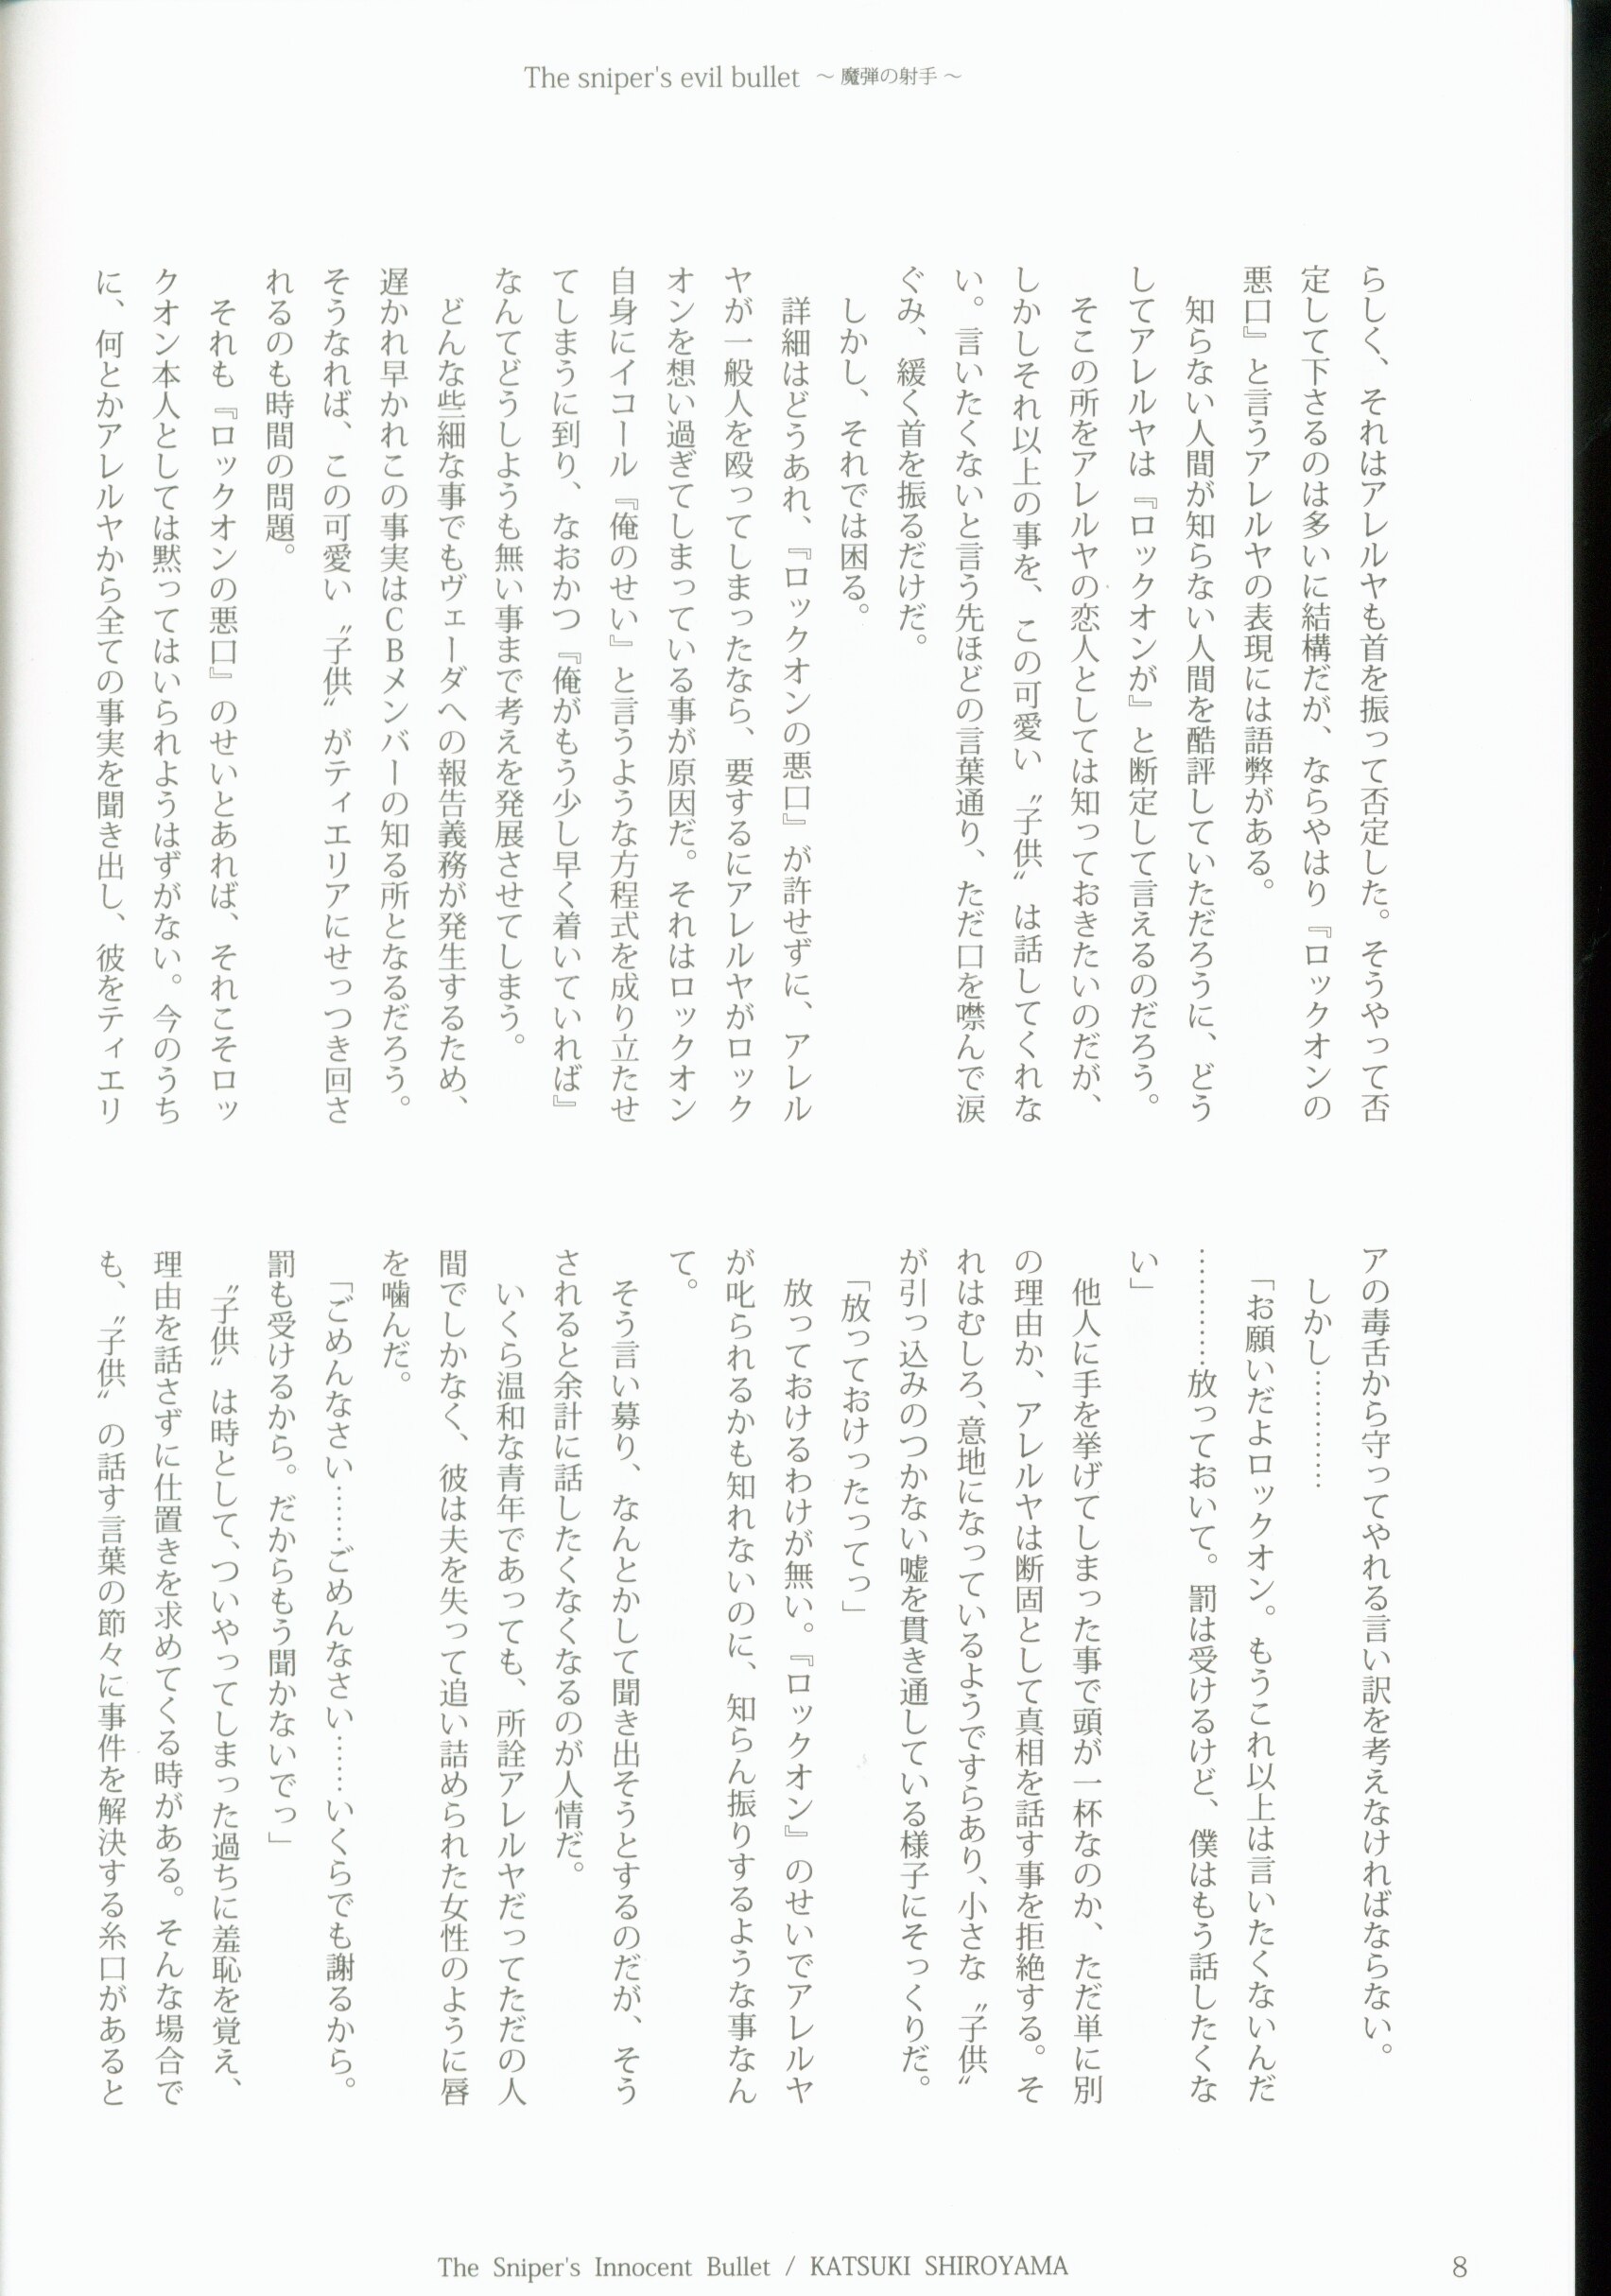 The sniper's evil bullet ～魔弾の射手～
らしく、それはアレルヤも首を振って否定した。そうやって否
定して下さるのは多いに結構だが、ならやはり『ロックオンの
悪口』と言うアレルヤの表現には語弊がある。
知らない人間が知らない人間を酷評していただろうに、どう
してアレルヤは『ロックオンが』と断定して言えるのだろう。
そこの所をアレルヤの恋人としては知っておきたいのだが、
しかしそれ以上の事を、この可愛い〝子供〟は話してくれな
い。言いたくないと言う先ほどの言葉通り、ただ口を噤んで涙
ぐみ、緩く首を振るだけだ。
しかし、それでは困る。
詳細はどうあれ、『ロックオンの悪口』が許せずに、アレル
ヤが一般人を殴ってしまったなら、要するにアレルヤがロック
オンを想い過ぎてしまっている事が原因だ。それはロックオン
自身にイコール『俺のせい』と言うような方程式を成り立たせ
てしまうに到り、なおかつ『俺がもう少し早く着いていれば』
なんてどうしようも無い事まで考えを発展させてしまう。
どんな些細な事でもヴェーダへの報告義務が発生するため、
遅かれ早かれこの事実はＣＢメンバーの知る所となるだろう。
そうなれば、この可愛い〝子供〟がティエリアにせっつき回さ
れるのも時間の問題。
それも『ロックオンの悪口』のせいとあれば、それこそロッ
クオン本人としては黙ってはいられようはずがない。今のうち
に、何とかアレルヤから全ての事実を聞き出し、彼をティエリ
アの毒舌から守ってやれる言い訳を考えなければならない。
しかし…………
「お願いだよロックオン。もうこれ以上は言いたくないんだ
…………放っておいて。罰は受けるけど、僕はもう話したくな
い」
他人に手を挙げてしまった事で頭が一杯なのか、ただ単に別
の理由か、アレルヤは断固として真相を話す事を拒絶する。そ
れはむしろ、意地になっているようですらあり、小さな〝子供〟
が引っ込みのつかない嘘を貫き通している様子にそっくりだ。
「放っておけったってっ」
放っておけるわけが無い。『ロックオン』のせいでアレルヤ
が叱られるかも知れないのに、知らん振りするような事なん
て。
そう言い募り、なんとかして聞き出そうとするのだが、そう
されると余計に話したくなくなるのが人情だ。
いくら温和な青年であっても、所詮アレルヤだってただの人
間でしかなく、彼は夫を失って追い詰められた女性のように唇
を噛んだ。
「ごめんなさい……ごめんなさい……いくらでも謝るから。
罰も受けるから。だからもう聞かないでっ」
〝子供〟は時として、ついやってしまった過ちに羞恥を覚え、
理由を話さずに仕置きを求めてくる時がある。そんな場合で
も、〝子供〟の話す言葉の節々に事件を解決する糸口があると
The Sniper's Innocent Bullet / KATSUKI SHIROYAMA
8